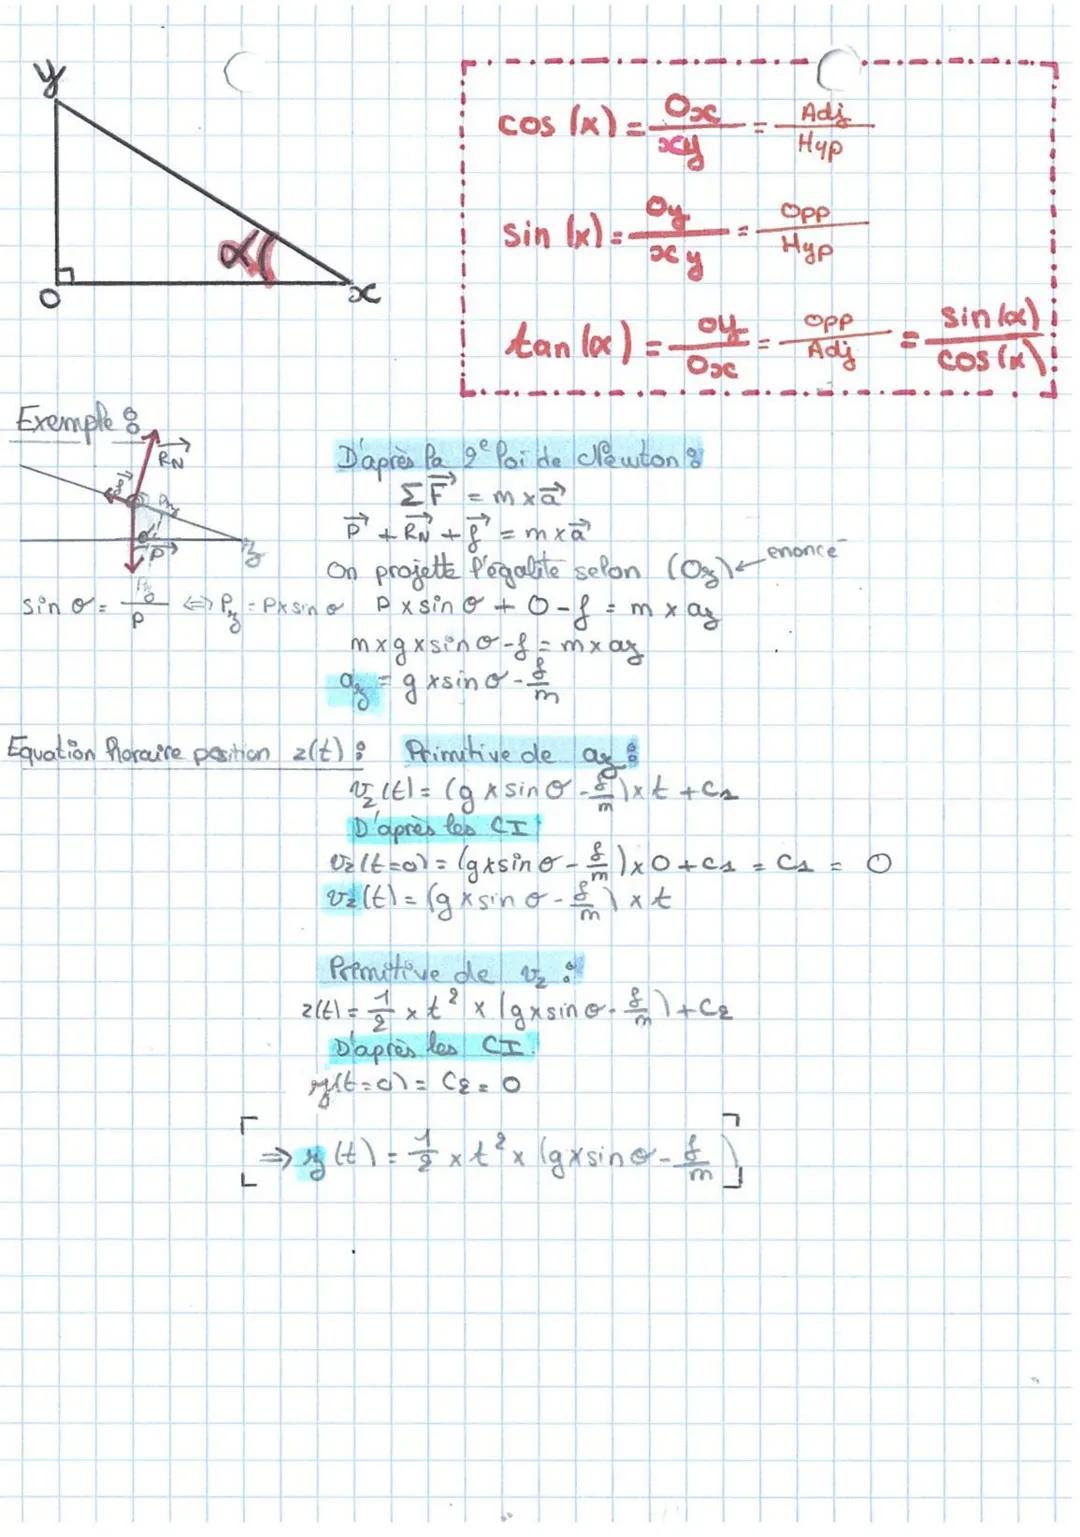 y
α
O
x
cos (α) = Ox/xy = Adj/Hyp
sin (α) = Oy/xy = Opp/Hyp
tan (α) = Oy/Ox = Opp/Adj = sin (α)/cos (α)
Exemple :
R_N
f
P
z
sin σ = P_z/P ⇔ P_z = P x sin σ
D'après la 2e loi de Newton :
Σ F = m x a
P + R_N + f = m x a
On projette l'égalité selon (Oz) ← énoncé
P x sin σ + O - f = m x a_z
m x g x sin σ - f = m x a_z
a_z = g x sin σ - f/m
Equation horaire position z(t) : Primitive de a_z :
v_z (t) = (g x sin σ - f/m) x t + C1
D'après les CI
v_z (t=0) = (g x sin σ - f/m) x 0 + C1 = C1 = 0
v_z (t) = (g x sin σ - f/m) x t
Primitive de v_z :
z(t) = 1/2 x t² x (g x sin σ - f/m) + C2
D'après les CI
z(t=0) = C2 = 0
⇒ z (t) = 1/2 x t² x (g x sin σ - f/m)